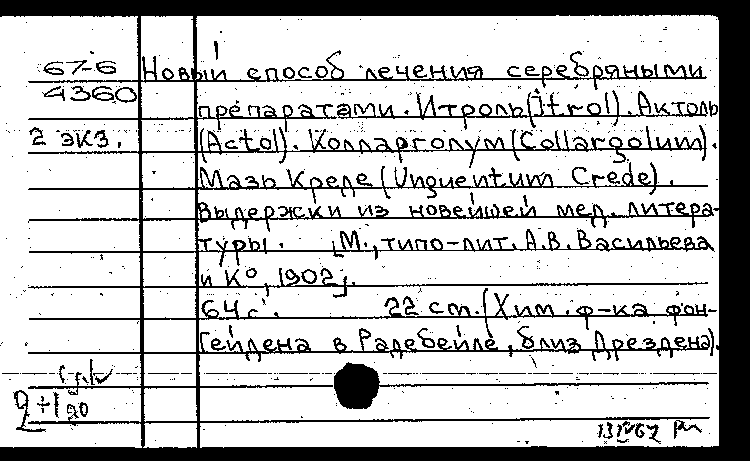 67-6 Новый способ лечения серебряными
4360 препаратами. Итроль(Itrol). Актоль
2 экз. (Actol). Колларголум(Collargolum).
Мазь Креде (Unguentum Crede).
Выдержки из новейшей мед. литера-
туры. [М., типо-лит. А.В. Васильева
и К°, 1902].
64 с. 22 cm. (Хим. ф-ка фон-
Гейдена в Радебейле, близ Дрездена).
2+1